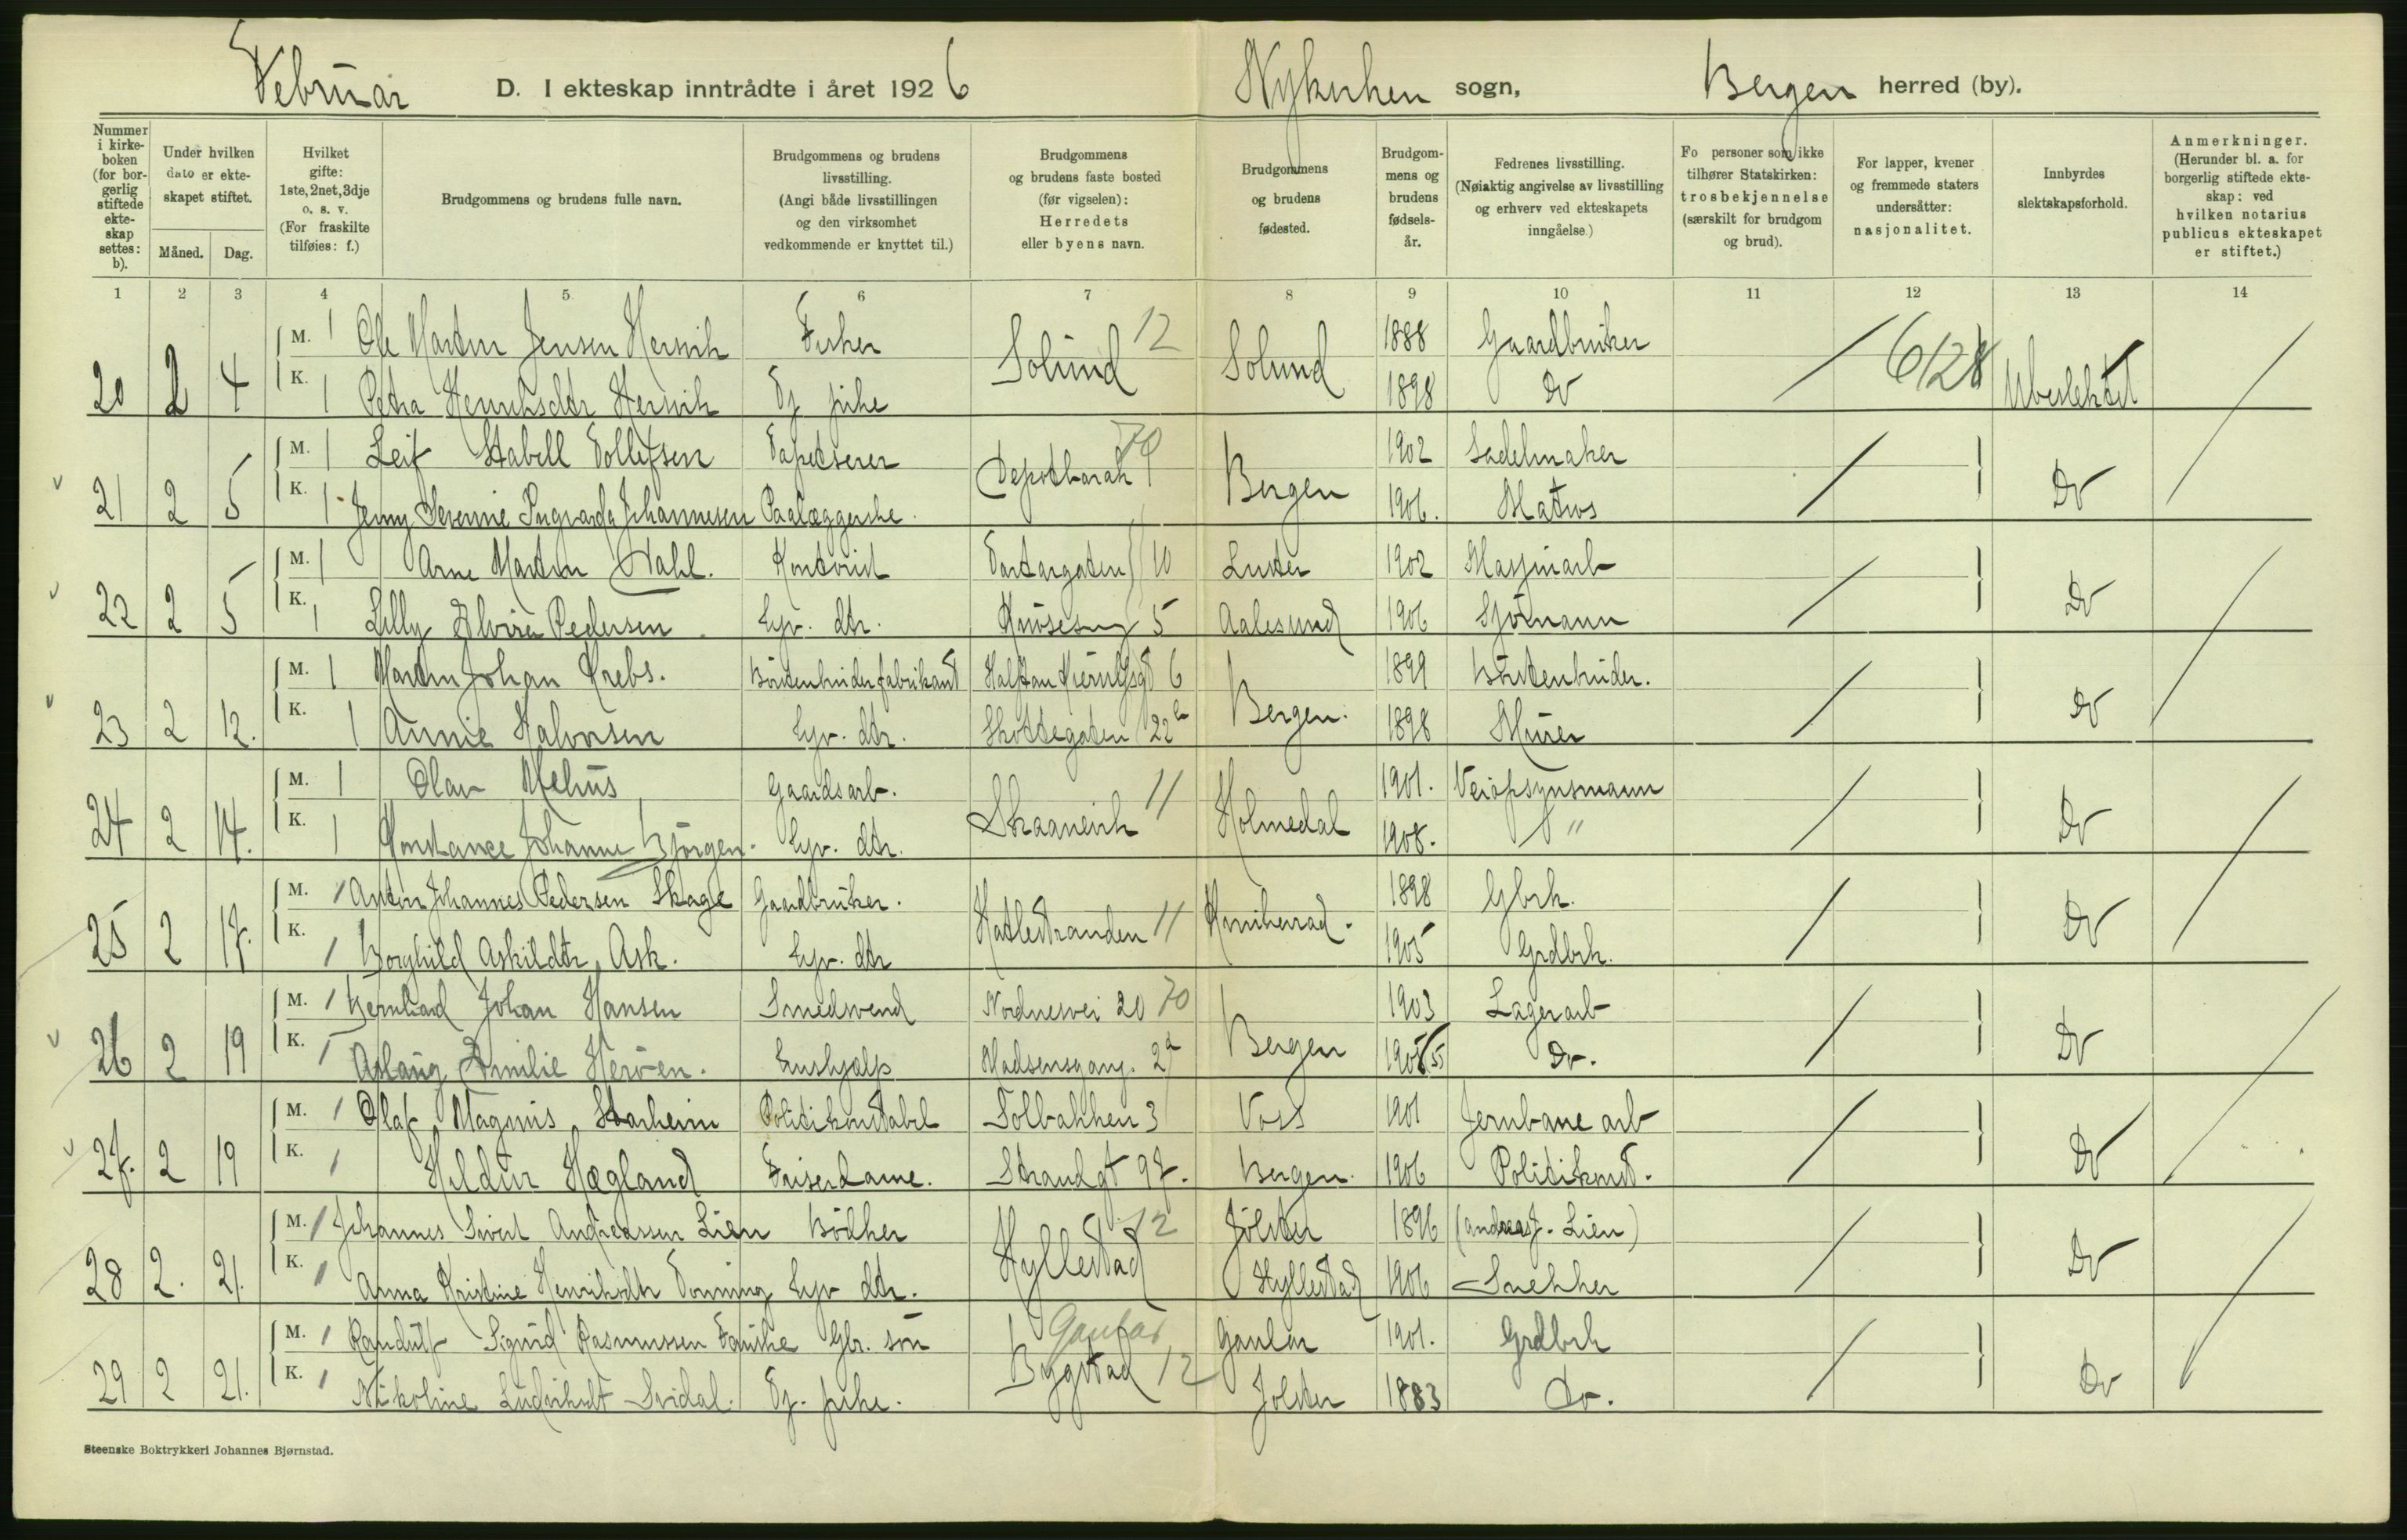 Februar D. I ekteskap inntrådte i året 1926 Nykirken sogn, Bergen herred (by).
Nummer i kirkeboken (for borgerlig stiftede ekteskap settes: b).
Under hvilken dato er ekteskapet stiftet.
Måned. Dag.
Hvilket gifte: 1ste, 2net, 3dje o. s. v. (For fraskilte tilføies: f.)
Brudgommens og brudens fulle navn.
Brudgommens og brudens livsstilling. (Angi både livsstillingen og den virksomhet vedkommende er knyttet til.)
Brudgommens og brudens faste bosted (før vigselen): Herredets eller byens navn.
Brudgommens og brudens fødested.
Brudgommens og brudens fødselsår.
Fedrenes livsstilling. (Nøiaktig angivelse av livsstilling og erhverv ved ekteskapets inngåelse.)
Fo personer som ikke tilhører Statskirken: trosbekjennelse (særskilt for brudgom og brud).
For lapper, kvener og fremmede staters undersåtter: nasjonalitet.
Innbyrdes slektskapsforhold.
Anmerkninger. (Herunder bl. a. for borgerlig stiftede ekteskap: ved hvilken notarius publicus ekteskapet er stiftet.)
1 2 3 4 5 6 7 8 9 10 11 12 13 14
M. 1 Ole Martin Jensen Hersvik Fisker Solund 12 Solund 1888 Gaardbruker 6128
20 2 4 K. 1 Petra Henriksdtr Hersvik Tj. pike 1898 Do Ubeslektet
M. 1 Leif Stabell Tollefsen Tapetserer Depotbarak 70 Bergen 1902 Sadelmaker
21 2 5 K. 1 Jenny Severine Ingvarda Johannesen Paalæggerske. 1906. Matros Do
M. 1 Arne Martin Dahl. Kontorist Tartargaten 10 Luster 1902 Maskinarb
22 2 5 K. 1 Lilly Elvira Pedersen Hjv. dtr. 5 Aalesund 1906 Sjömann Do
M. 1 Martin Johan Krebs. Börstenbinderfabrikant Halfdan Kjerulfsgt 6 Bergen. 1899 Börstenbinder.
23 2 12. K. 1 Annie Halvorsen Hjv. dtr. Skottegaten 22b 1898 Murer Do
M. 1 Olav Mehus Gaardsarb. Skaanevik 11 Holmedal 1901. Veiopsynsmann
24 2 14. K. 1 Konstance Johanne Björgen. Hjv. dtr. 1908. " Do
M. 1 Anton Johannes Pedersen Skage Gaardbruker. Hatlestranden 11 Kvinherad. 1898 Gbrk.
25 2 17. K. 1 Borghild Askildtr Ask. Hjv. dtr 1905 Grdbrk. Do
M. 1 Bernhard Johan Hansen Smedsvend Nordnesvei 20 70 Bergen 1903 Lagerarb
26 2 19 K. 1 Aslaug Emilie Heröen. Hushjælp Madsensgang. 2a 1905 Do. Do
M. 1 Olaf Magnus Starheim Politikonstabel Tolbakken 3 Voss 1901 Jernbanearb
27. 2 19 K. 1 Hildur Hægland Friserdame. Strandgt 97. Bergen. 1906 Politikonst. Do
M. 1 Johannes Sivert Andreassen Lien Bödker Hyllestad 12 Jölster 1896 (Andreas J. Lien)
28 2. 21. K. 1 Anna Kristine Henriksdtr Hjv dtr. Hyllestad 1906 Snekker Do
M. 1 Randulf Sigurd Rasmussen Gbr. sön Gaular Bygstad 12 Gaular 1901. Grdbrk
29 2 21. K. 1 Nikoline Ludvikdt Svidal. Tj. pike. Jolster 1883 Do. Do
Steenske Boktrykkeri Johannes Bjørnstad.